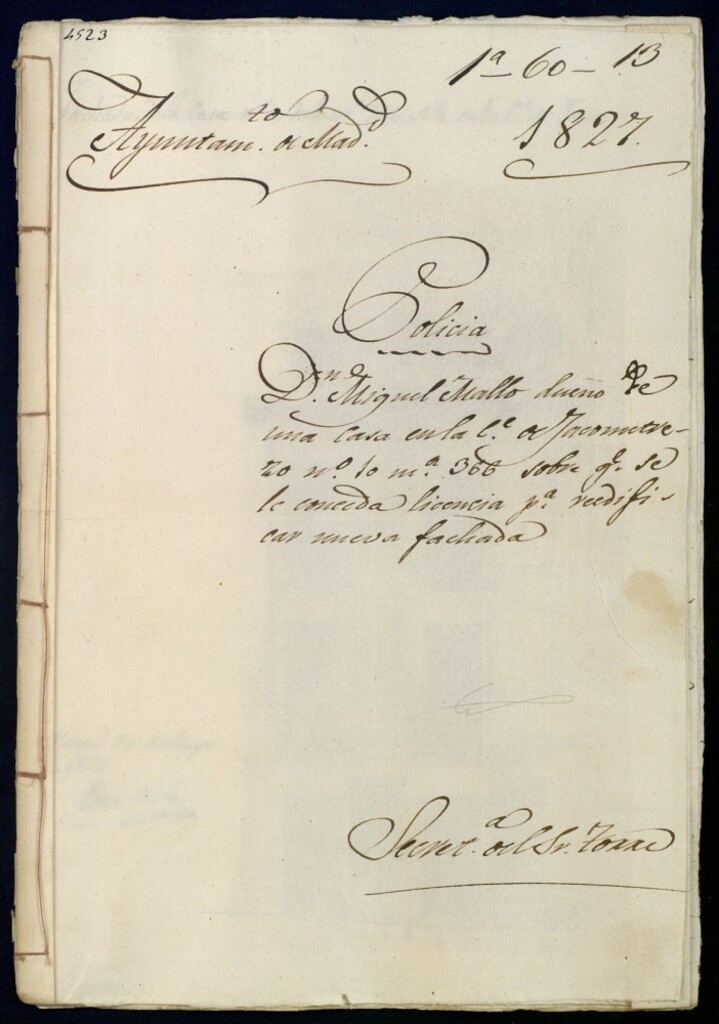 4523
1ª-60-13
Ayuntam.to de Mad.d
1827.
Policia
D.n Miguel Mallo dueño de
una casa en la c.e de Jacometre-
zo nº. 10 m.ª 366 sobre q.e se
le conceda licencia p.ª reedifi-
car nueva fachada
Secret.a del Sr. Torre